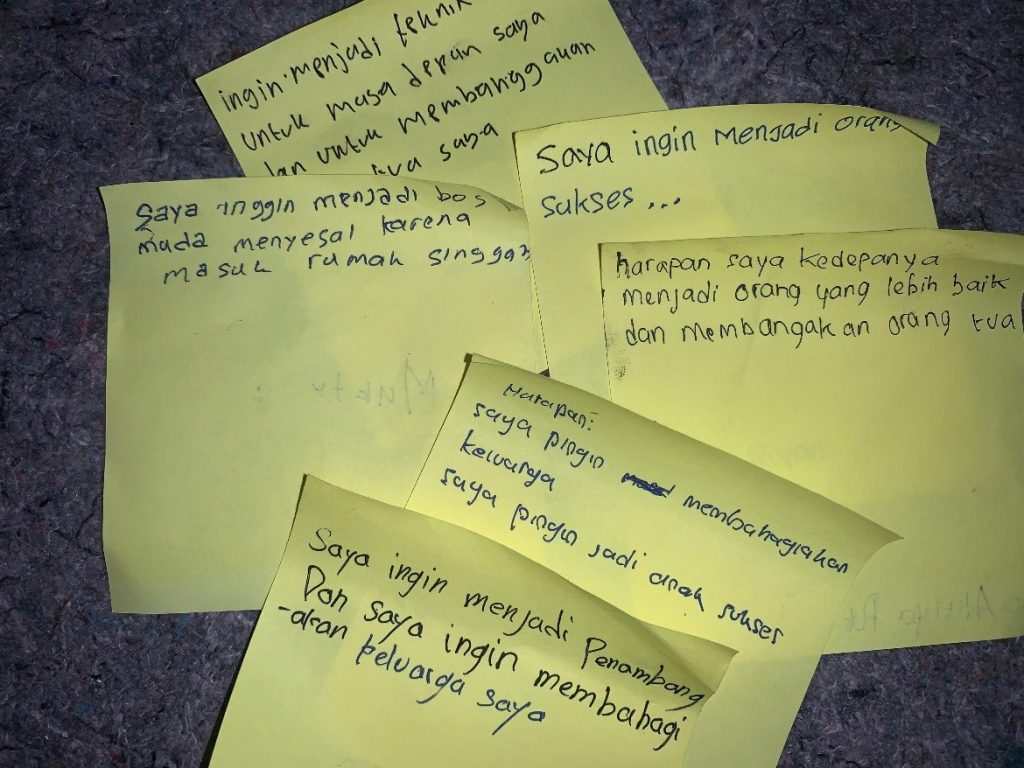 ingin menjadi teknik
untuk masa depan saya
dan untuk membanggakan
saya
Saya ingin menjadi orang
sukses...
Saya inggin menjadi bos
muda menyesal karena
masuk rumah singgah
harapan saya kedepanya
menjadi orang yang lebih baik
dan membangakan orang tua
Harapan:
saya pingin membahagiakan
keluarga
saya pingin jadi anak sukses
Saya ingin menjadi Penambang
Dan saya ingin membahagi
-akan keluarga saya